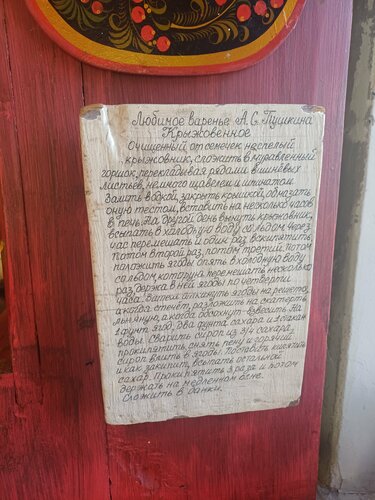 Любимое варенье А.С. Пушкина
Крыжовенное
Очищенный от семечек неспелый
крыжовник, сложить в муравленный
горшок, перекладывая рядами вишнёвых
листьев, немного щавелем и шпинатом.
Залить водкой, закрыть крышкой, обмазать
оную тестом, вставить на несколько часов
в печь. На другой день вынуть крыжовник,
всыпать в холодную воду со льдом, через
час перемешать и один раз вскипятить,
потом второй раз, потом третий, потом
положить ягоды опять в холодную воду
со льдом, которую перемешать несколько
раз, держа в ней ягоды по четверти
часа. Затем откинуть ягоды на решето,
а когда стечёт, разложить на скатерть
льняную, а когда обсохнут - взвесить. На
1 фунт ягод, два фунта сахара и 1 стакан
воды. Сварить сироп из 3/4 сахара,
прокипятить, снять пену и горячий
сироп влить в ягоды, поставить кипятить
и как закипит, всыпать остальной
сахар. Прокипятить 3 раза и потом
держать на медленном огне.
Сложить в банки.